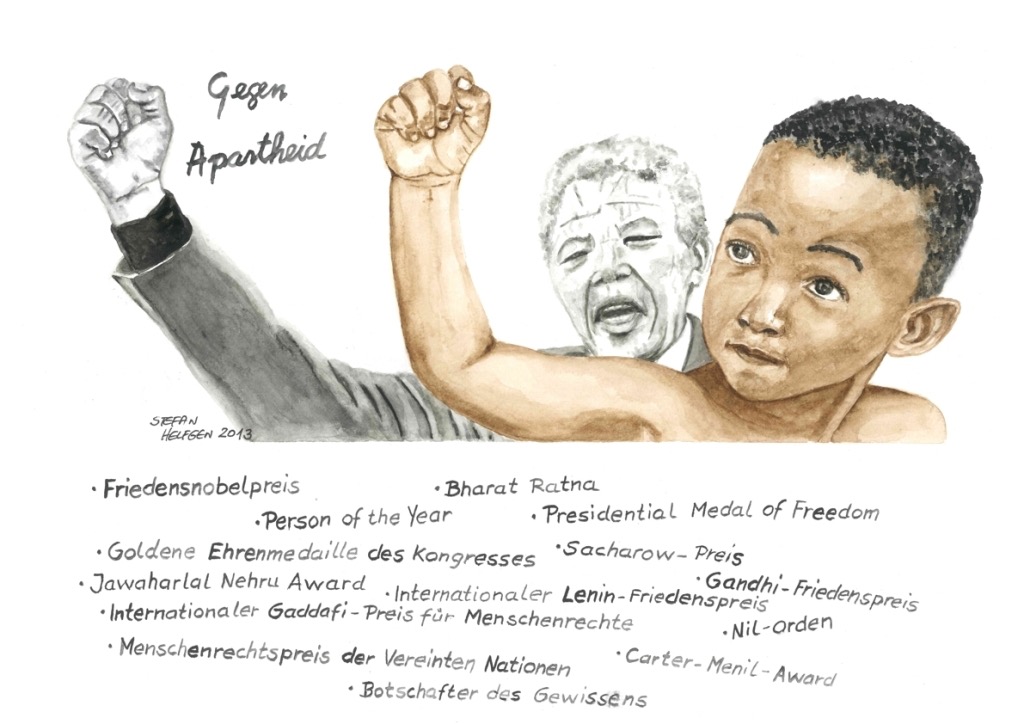 Gegen
Apartheid
STEFAN
HELFGEN 2013
· Friedensnobelpreis
· Bharat Ratna
· Person of the Year
· Presidential Medal of Freedom
· Goldene Ehrenmedaille des Kongresses
· Sacharow-Preis
· Jawaharlal Nehru Award
· Internationaler Lenin-Friedenspreis
· Gandhi-Friedenspreis
· Internationaler Gaddafi-Preis für Menschenrechte
· Nil-Orden
· Menschenrechtspreis der Vereinten Nationen
· Carter-Menil-Award
· Botschafter des Gewissens